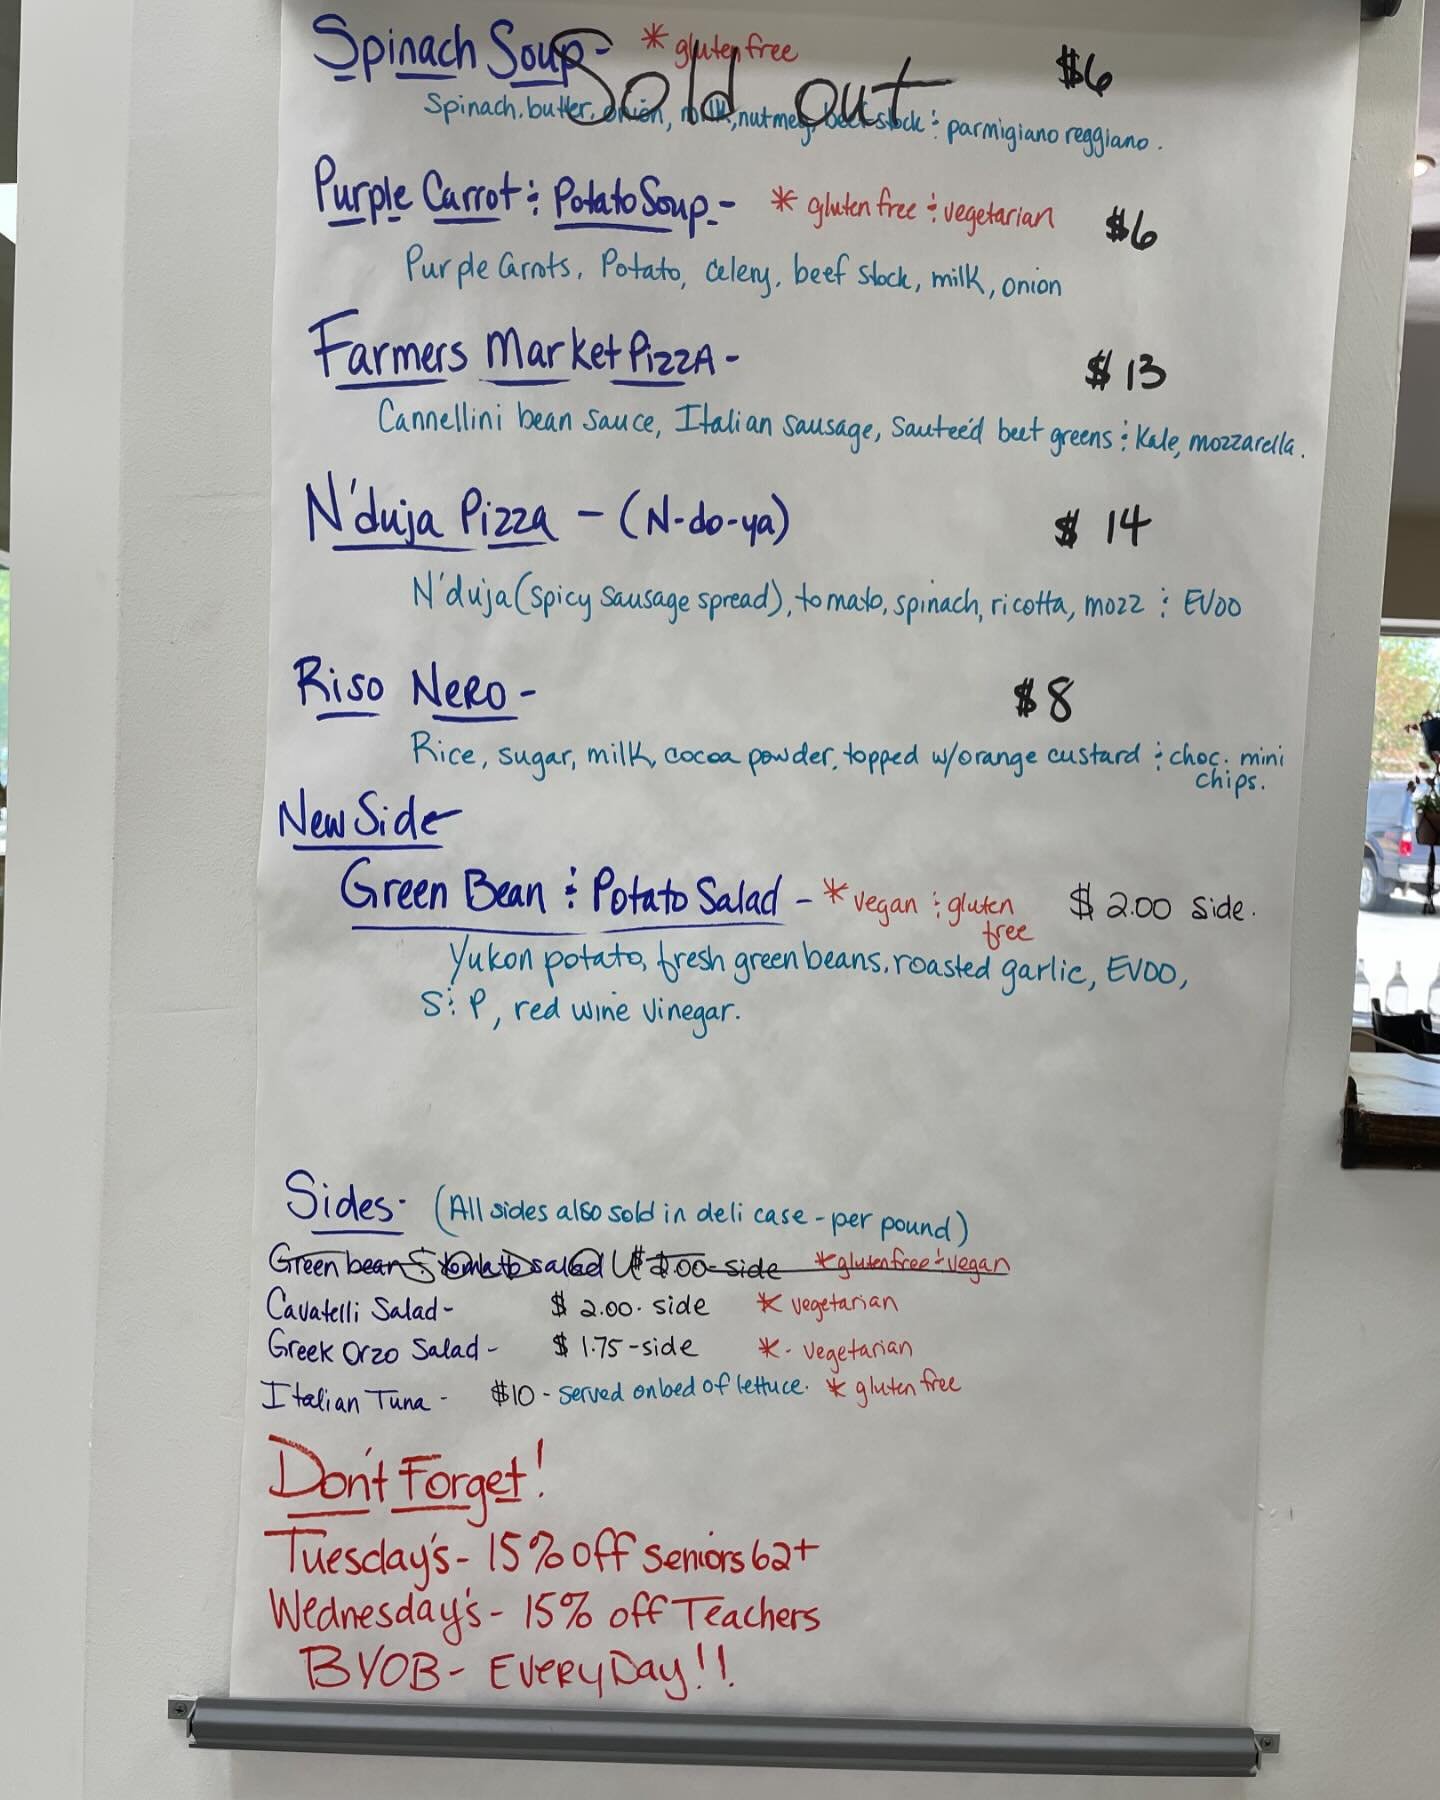 Spinach Soup - * gluten free $6
Sold out
Spinach, butter, onion, milk, nutmeg, beef stock & parmigiano reggiano.
Purple Carrot & Potato Soup - * gluten free & vegetarian $6
Purple Carrots, Potato, celery, beef stock, milk, onion
Farmers Market Pizza - $13
Cannellini bean sauce, Italian sausage, Sauteé'd beet greens & Kale, mozzarella.
N'duja Pizza - (N-do-ya) $14
N'duja (spicy sausage spread), tomato, spinach, ricotta, mozz & EVOO
Riso Nero - $8
Rice, sugar, milk, cocoa powder, topped w/orange custard & choc. mini
chips.
New Side
Green Bean & Potato Salad - * vegan & gluten $2.00 side.
free
Yukon potato, fresh green beans, roasted garlic, EVOO,
S & P, red wine vinegar.
Sides - (All sides also sold in deli case - per pound)
Green bean & tomato salad $2.00-side * gluten free & vegan
Cavatelli Salad - $2.00. side * vegetarian
Greek Orzo Salad - $1.75-side * - vegetarian
Italian Tuna - $10 - served on bed of lettuce. * gluten free
Don't Forget!
Tuesday's - 15% off seniors 62+
Wednesday's - 15% off Teachers
BYOB - EveryDay!!